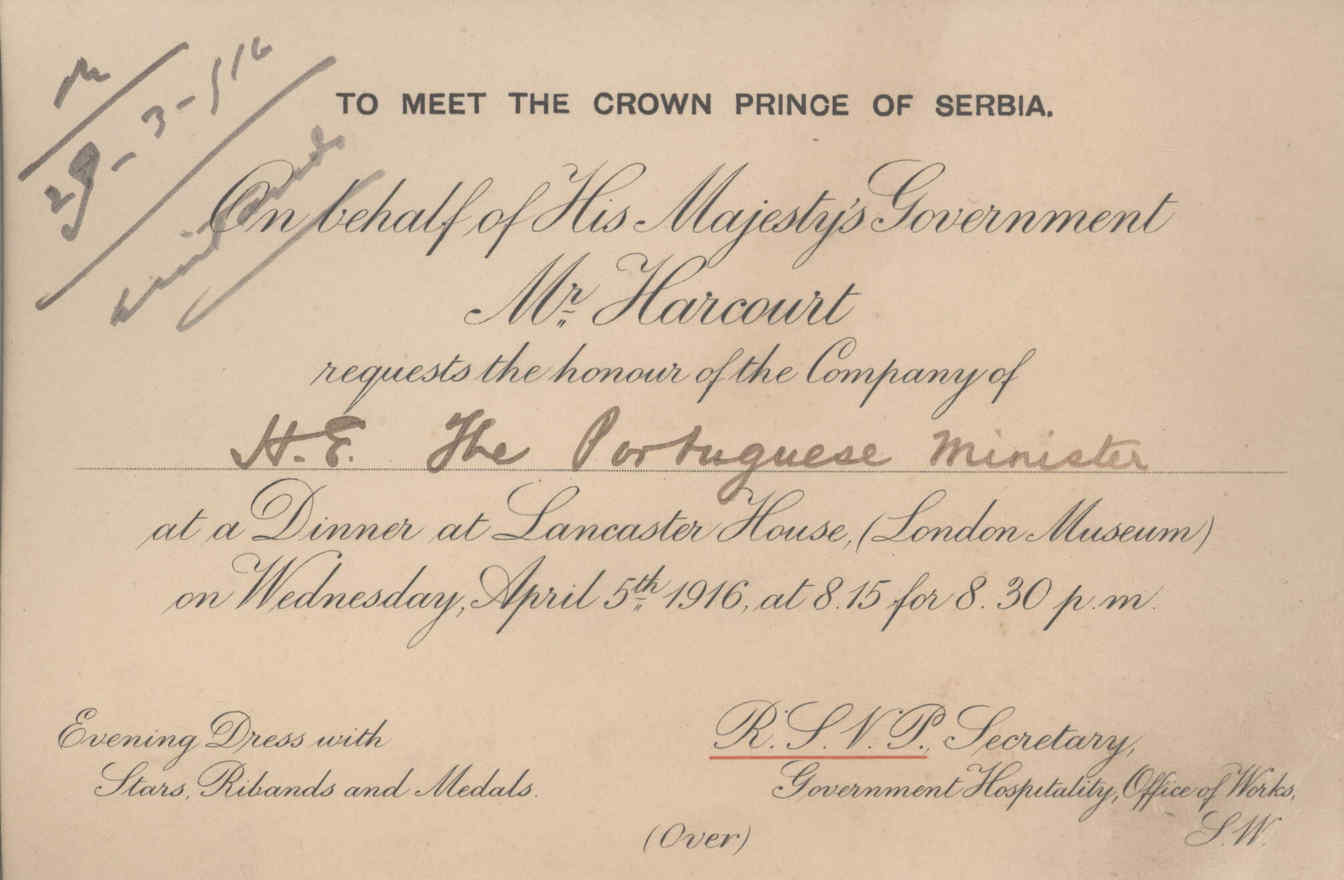 29-3-916
TO MEET THE CROWN PRINCE OF SERBIA.
On behalf of His Majesty's Government
Mr. Harcourt
requests the honour of the Company of
H.E. The Portuguese Minister
at a Dinner at Lancaster House, (London Museum)
on Wednesday, April 5th 1916, at 8.15 for 8.30 p.m.
Evening Dress with
Stars, Ribands and Medals.
R.S.V.P., Secretary,
Government Hospitality, Office of Works,
S.W.
(Over)